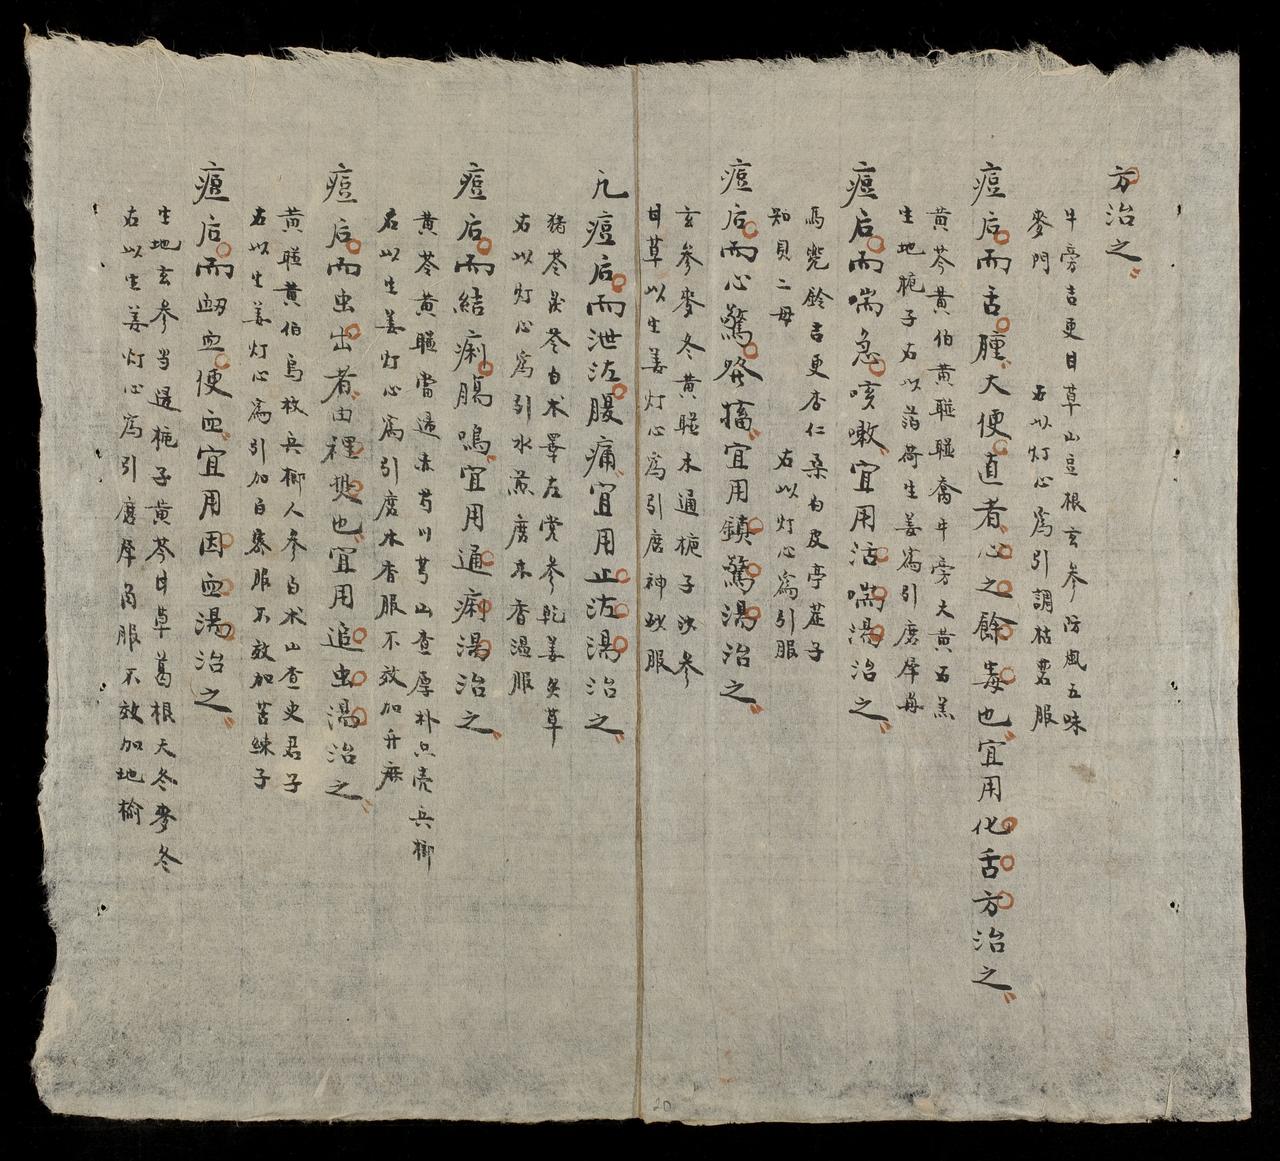 方治之
牛旁吉更甘草山豆根玄參防風五味
麥門　右以灯心為引調枯礬服
痘后而舌腫大便直者心之餘毒也宜用化舌方治之
黃芩黃伯黃連連喬牛旁大黃石羔
生地梔子右以薄荷生姜為引磨犀每
痘后而喘急咳嗽宜用活喘湯治之
馬兜鈴吉更杏仁桑白皮亭苙子
知貝二母　右以灯心為引服
痘后而心驚發搐宜用鎮驚湯治之
玄參麥冬黃連木通梔子沙參
甘草以生姜灯心為引磨神砂服
凡痘后而泄泣腹痛宜用止泣湯治之
猪苓茯苓白术澤左党參乾姜炙草
右以灯心為引水煎磨木香溫服
痘后而結痢腸鳴宜用通痢湯治之
黃芩黃連當過赤芍川芎山查厚朴只壳兵榔
右以生姜灯心為引磨木香服不效加升麻
痘后而虫出者由裡熱也宜用追虫湯治之
黃連黃伯烏枚兵榔人參白术山查史君子
右以生姜灯心為引加自寒服不效加苦練子
痘后而衂血便血宜用因血湯治之
生地玄參当過梔子黃芩甘草葛根天冬麥冬
右以生姜灯心為引磨犀角服不效加地榆
20